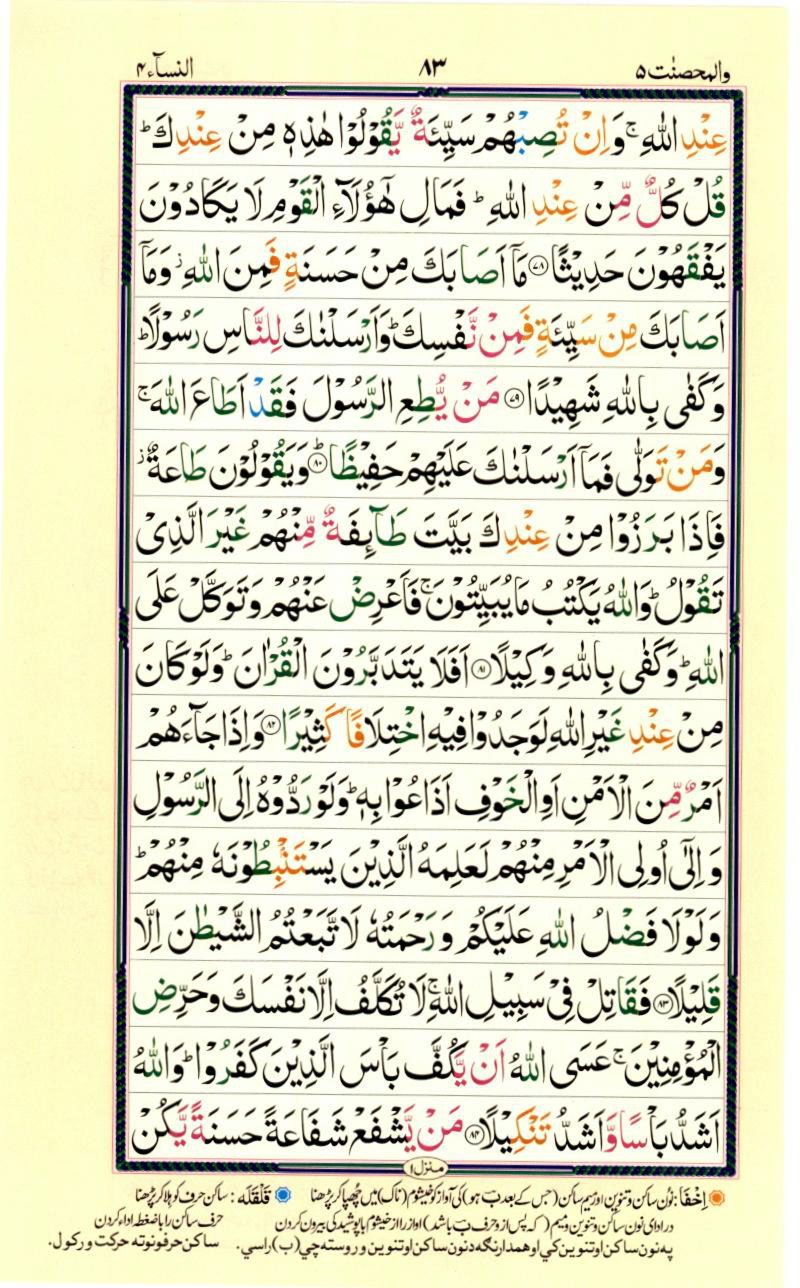 والمحصنٰت ۵ ۸۳ النسآء ۴
عِنْدِ اللّٰهِ ۚ وَاِنْ تُصِبْهُمْ سَيِّئَةٌ يَّقُوْلُوْا هٰذِهٖ مِنْ عِنْدِكَ ؕ
قُلْ كُلٌّ مِّنْ عِنْدِ اللّٰهِ ؕ فَمَالِ هٰٓؤُلَآءِ الْقَوْمِ لَا يَكَادُوْنَ
يَفْقَهُوْنَ حَدِيْثًا ﴿۷۸﴾ مَاۤ اَصَابَكَ مِنْ حَسَنَةٍ فَمِنَ اللّٰهِ ز وَمَاۤ
اَصَابَكَ مِنْ سَيِّئَةٍ فَمِنْ نَّفْسِكَ ؕ وَاَرْسَلْنٰكَ لِلنَّاسِ رَسُوْلًا ؕ
وَكَفٰى بِاللّٰهِ شَهِيْدًا ﴿۷۹﴾ مَنْ يُّطِعِ الرَّسُوْلَ فَقَدْ اَطَاعَ اللّٰهَ ۚ
وَمَنْ تَوَلّٰى فَمَاۤ اَرْسَلْنٰكَ عَلَيْهِمْ حَفِيْظًا ﴿۸۰﴾ؕ وَيَقُوْلُوْنَ طَاعَةٌ ز
فَاِذَا بَرَزُوْا مِنْ عِنْدِكَ بَيَّتَ طَآئِفَةٌ مِّنْهُمْ غَيْرَ الَّذِىْ
تَقُوْلُ ؕ وَاللّٰهُ يَكْتُبُ مَا يُبَيِّتُوْنَ ۚ فَاَعْرِضْ عَنْهُمْ وَتَوَكَّلْ عَلَى
اللّٰهِ ؕ وَكَفٰى بِاللّٰهِ وَكِيْلًا ﴿۸۱﴾ اَفَلَا يَتَدَبَّرُوْنَ الْقُرْاٰنَ ؕ وَلَوْ كَانَ
مِنْ عِنْدِ غَيْرِ اللّٰهِ لَوَجَدُوْا فِيْهِ اخْتِلَافًا كَثِيْرًا ﴿۸۲﴾ وَاِذَا جَآءَهُمْ
اَمْرٌ مِّنَ الْاَمْنِ اَوِ الْخَوْفِ اَذَاعُوْا بِهٖ ؕ وَلَوْ رَدُّوْهُ اِلَى الرَّسُوْلِ
وَاِلٰٓى اُولِى الْاَمْرِ مِنْهُمْ لَعَلِمَهُ الَّذِيْنَ يَسْتَنْۢبِطُوْنَهٗ مِنْهُمْ ؕ
وَلَوْلَا فَضْلُ اللّٰهِ عَلَيْكُمْ وَرَحْمَتُهٗ لَاتَّبَعْتُمُ الشَّيْطٰنَ اِلَّا
قَلِيْلًا ﴿۸۳﴾ فَقَاتِلْ فِىْ سَبِيْلِ اللّٰهِ ۚ لَا تُكَلَّفُ اِلَّا نَفْسَكَ وَحَرِّضِ
الْمُؤْمِنِيْنَ ۚ عَسَى اللّٰهُ اَنْ يَّكُفَّ بَاْسَ الَّذِيْنَ كَفَرُوْا ؕ وَاللّٰهُ
اَشَدُّ بَاْسًا وَّاَشَدُّ تَنْكِيْلًا ﴿۸۴﴾ مَنْ يَّشْفَعْ شَفَاعَةً حَسَنَةً يَّكُنْ
منزل ۱
اِخْفَا: نُون ساکن و تنوین اور میم ساکن (جس کے بعد بَ ہو) کی آواز کو خیشوم (ناک) میں چُھپا کر پڑھنا قَلْقَلَه: ساکن حرف کو ہلا کر پڑھنا
در ادای نون ساکن و تنوین و میم (که پس از و حرف بَ باشد) اواز را از خیشوم با پوشیدگی بیرون کردن حرف ساکن را با ضغطه اداء کردن
په نون ساکن او تنوین کي او همدارنګه د نون ساکن او تنوین وروسته چي (ب) راسي. ساکن حرف و نوته حرکت ورکول.